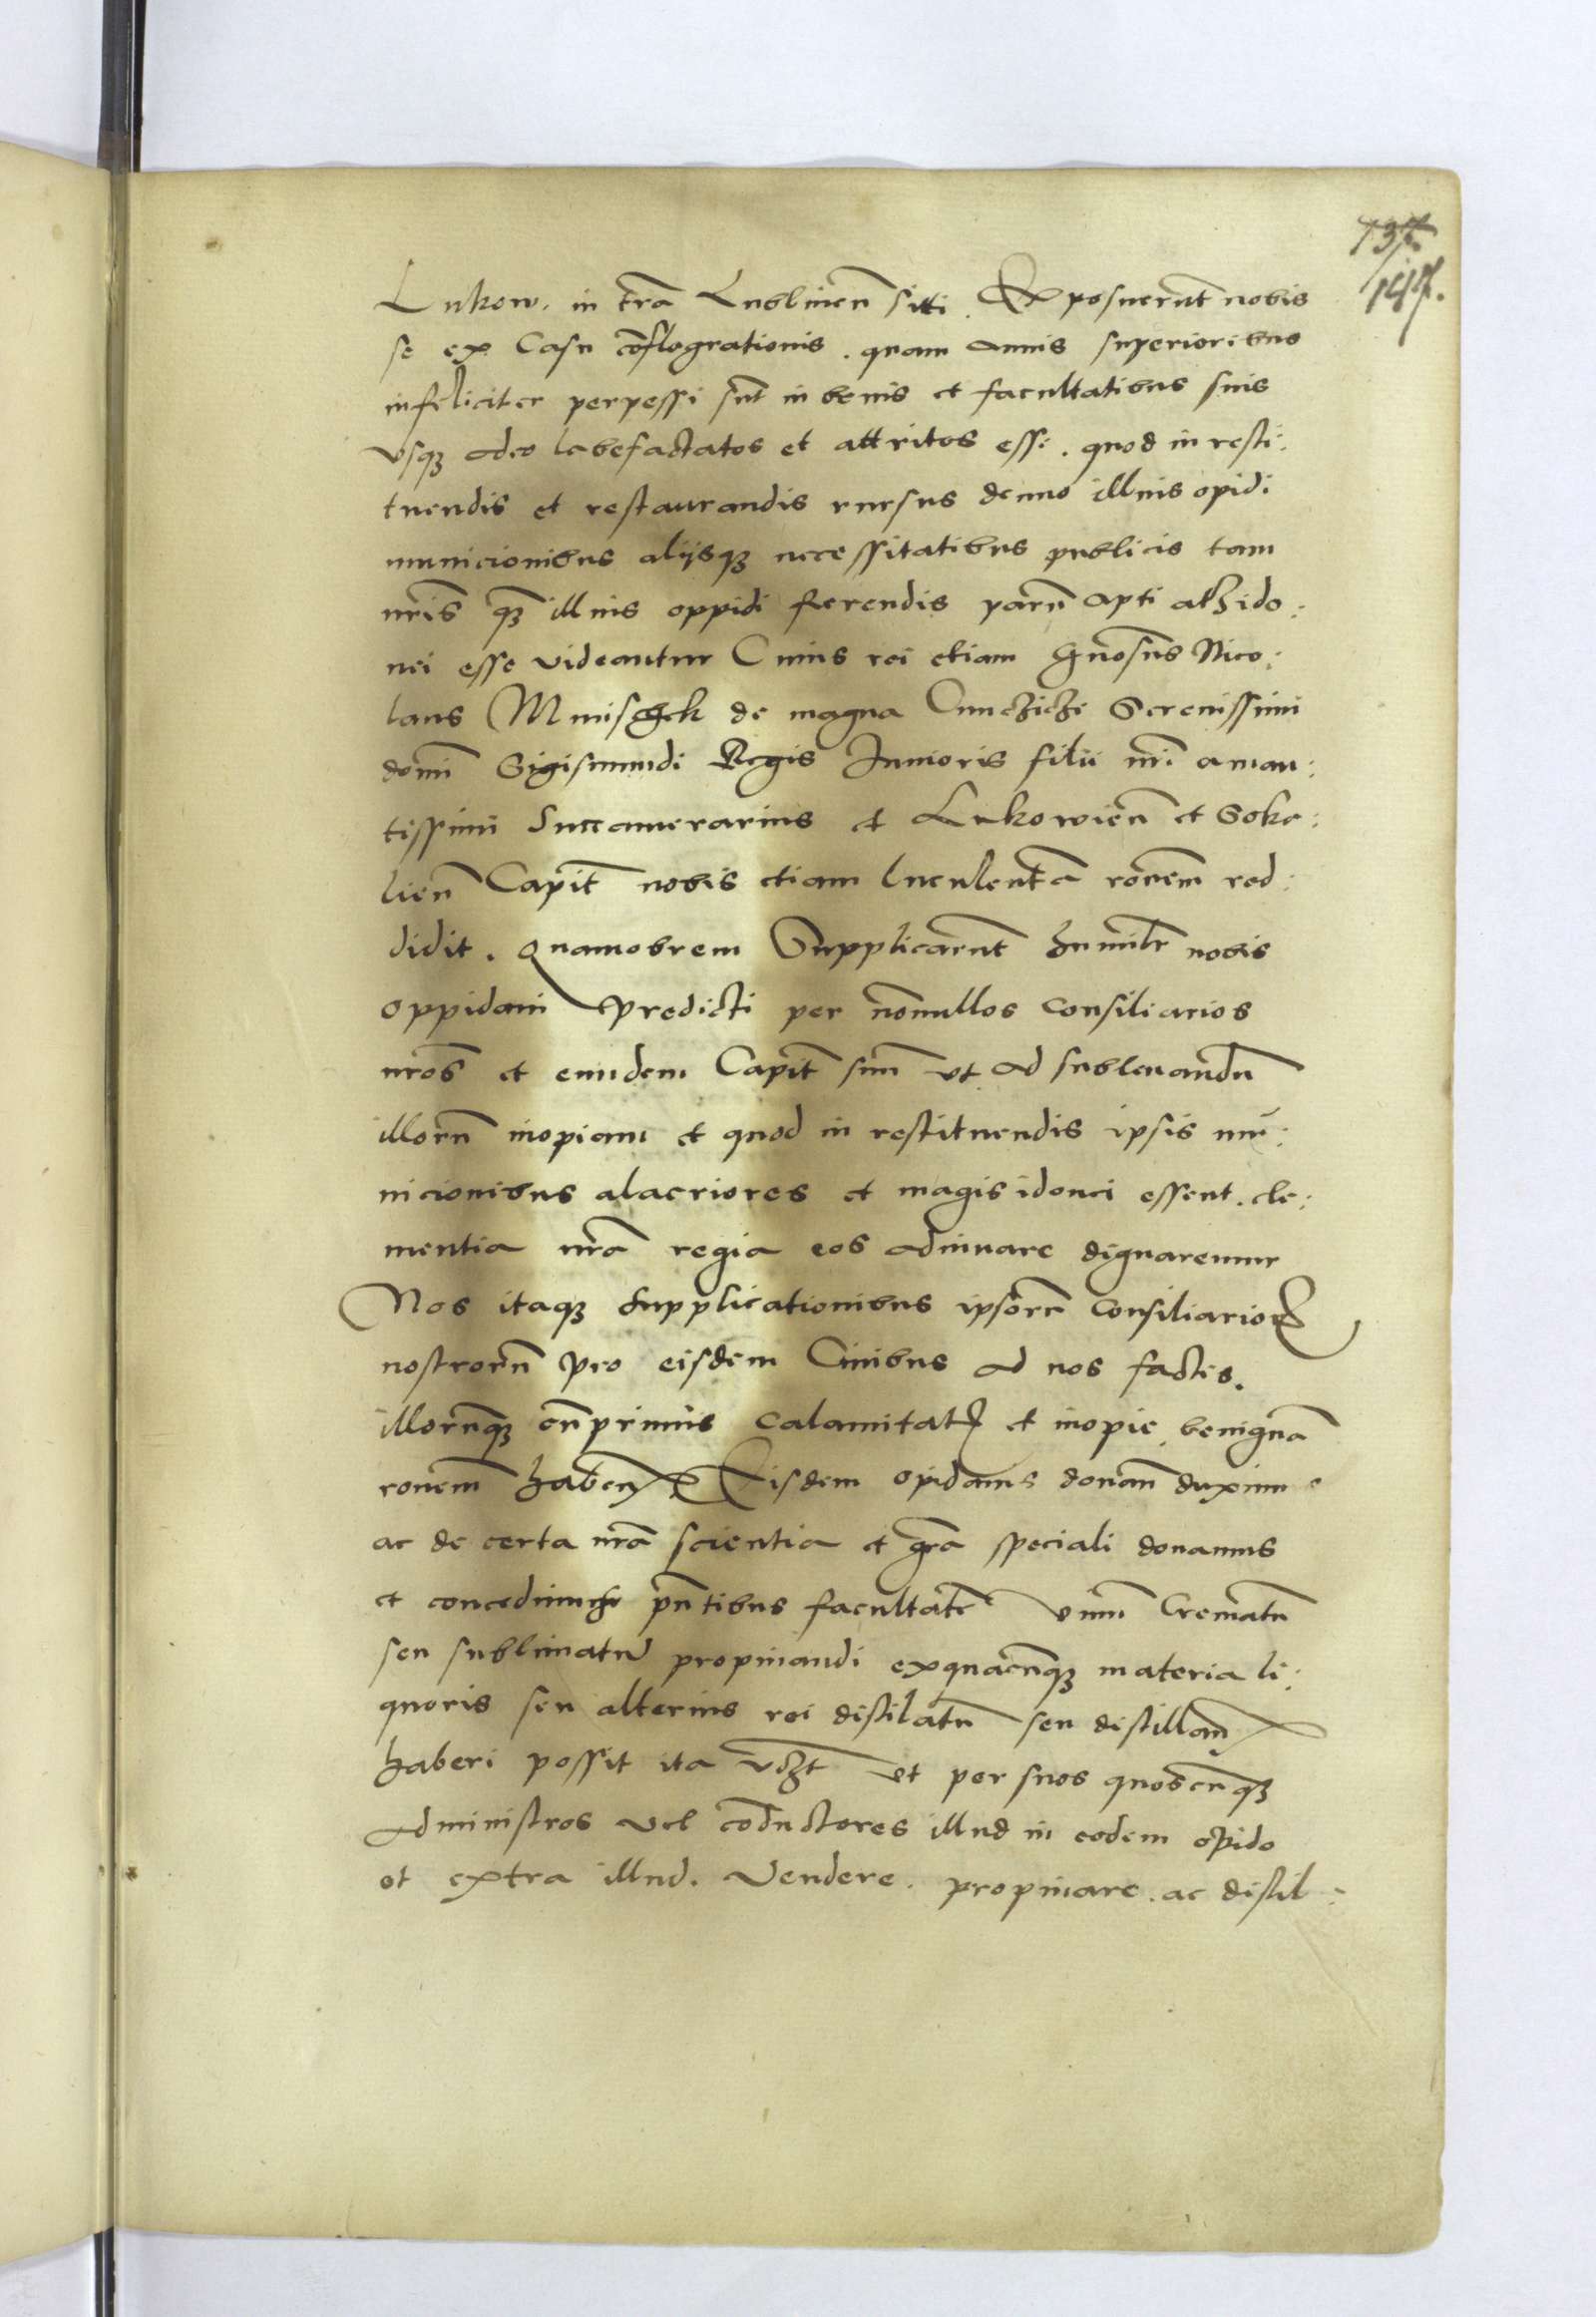 137.
147.
Lukow. in tra͠ Lublineñ sitti. Exposuerut͠ nobis
se ex Casu co͠flogrationis. quam annis superioribus
infeliciter perpessi sut͠ in bonis et facultatibus suis
vsqz adeo labefactatos et attritos esse. quod in resti:
tuendis et restaurandis rursus denuo illius opidi
municionibus alijsqz necessitatibus publicis tam
nr͠is qz͠ illius oppidi ferendis paru͠ apti atqz ido:
nei esse videantur Cuius rei etiam Gn͠osus Nico:
laus Mnischek de magna Cunczicze Serenissimi
domi͠ Sigismundi Regis Junioris filii nr͠i aman:
tissimi Succamerarius et Lukowien͠ et Soka:
lien͠ Capit͠ nobis etiam luculenta͠ ro͠nem red:
didit. Quamobrem Supplicarut͠ humilr͠ nobis
oppidani predicti per no͠nullos Consiliarios
nr͠os et eundem Capit͠ suu͠ vt ad subleuandu͠
illoru͠ inopiam et quod in restituendis ipsis mu͠:
nicionibus alacriores et magis idonei essent. cle:
mentia nr͠a regia eos adiuuare dignaremur
Nos itaqz supplicationibus ipsoru͠ Consiliarioꝝ
nostroru͠ pro eisdem Ciuibus ad nos factis.
illoru͠qz o͠nprimis calamitatꝭ et inopie benigna͠
ro͠nem haben͠ Eisdem opidanis donan͠ duximus
ac de certa nr͠a scientia et gr͠a speciali donamus
et concedimus pn͠tibus facultate͠ vinu͠ Crematu͠
seu sublimatu͠ propinandi exquacu͠qz materia li:
quoris seu alterius rei distilatu͠ seu distillan͠
haberi possit ita vzt͠ vt per suos quoscu͠qz
administros vel co͠ductores illud in eodem opido
et extra illud. vendere. propinare. ac distil: